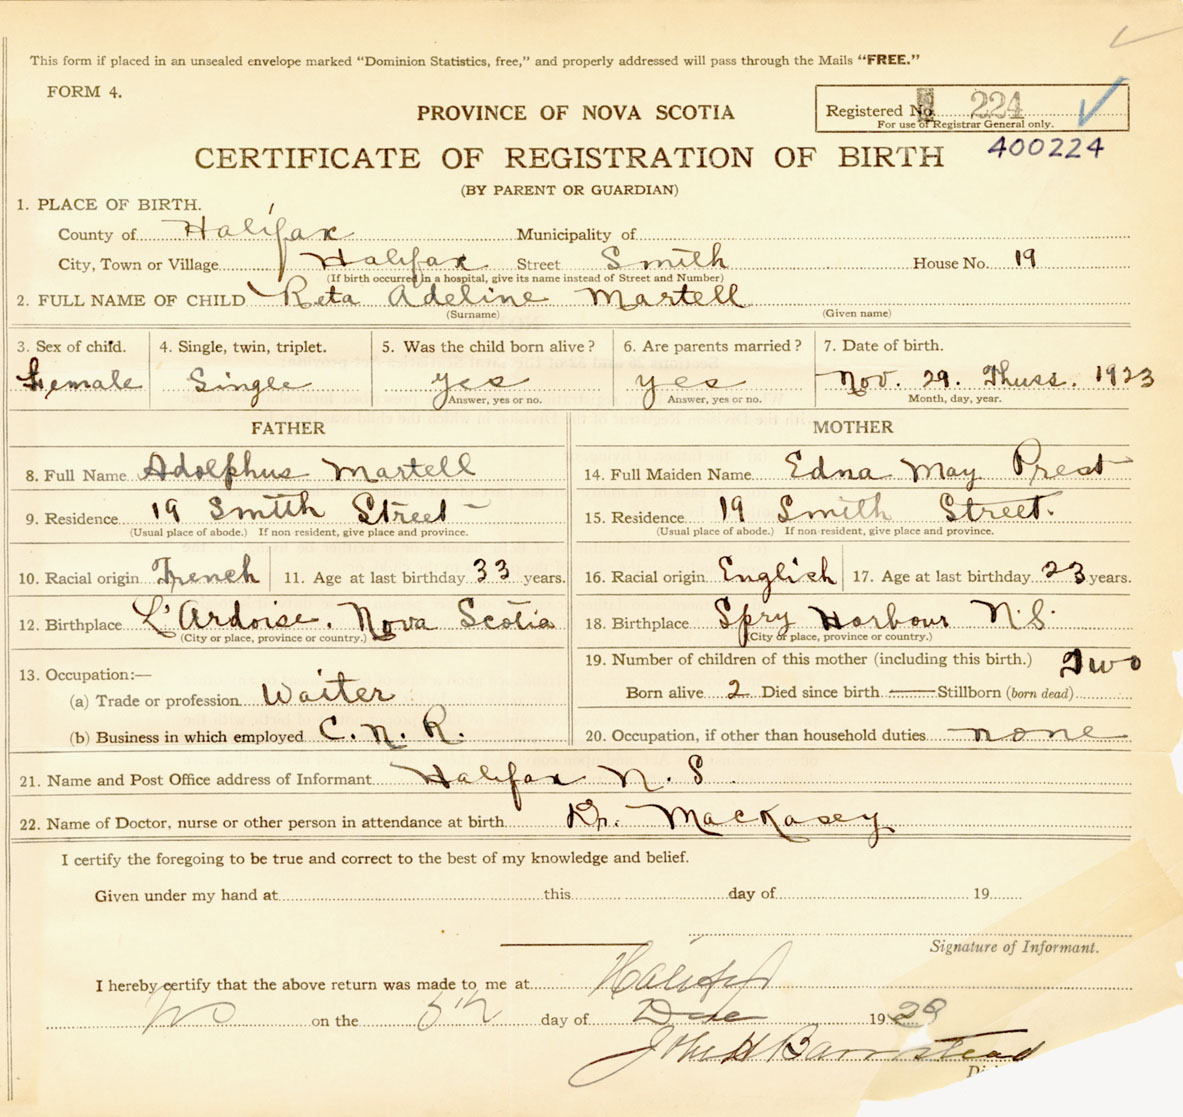 This form if placed in an unsealed envelope marked "Dominion Statistics, free," and properly addressed will pass through the Mails "FREE."
FORM 4.
PROVINCE OF NOVA SCOTIA
Registered No. 224
For use of Registrar General only.
CERTIFICATE OF REGISTRATION OF BIRTH
400224
(BY PARENT OR GUARDIAN)
1. PLACE OF BIRTH.
County of Halifax Municipality of
City, Town or Village Halifax Street Smith House No. 19
(If birth occurred in a hospital, give its name instead of Street and Number)
2. FULL NAME OF CHILD Reta Adeline Martell
(Surname) (Given name)
3. Sex of child. 4. Single, twin, triplet. 5. Was the child born alive? 6. Are parents married? 7. Date of birth.
Female Single yes yes Nov. 29. Thurs. 1923
Answer, yes or no. Answer, yes or no. Month, day, year.
FATHER MOTHER
8. Full Name Adolphus Martell 14. Full Maiden Name Edna May Prest
9. Residence 19 Smith Street 15. Residence 19 Smith Street.
(Usual place of abode.) If non-resident, give place and province. (Usual place of abode.) If non-resident, give place and province.
10. Racial origin French 11. Age at last birthday 33 years. 16. Racial origin English 17. Age at last birthday 23 years.
12. Birthplace L'Ardoise. Nova Scotia 18. Birthplace Spry Harbour N.S.
(City or place, province or country.) (City or place, province or country.)
13. Occupation:— 19. Number of children of this mother (including this birth.) Two
(a) Trade or profession Waiter Born alive 2 Died since birth — Stillborn (born dead)
(b) Business in which employed C.N.R. 20. Occupation, if other than household duties none
21. Name and Post Office address of Informant Halifax N.S.
22. Name of Doctor, nurse or other person in attendance at birth Dr. MacKasey
I certify the foregoing to be true and correct to the best of my knowledge and belief.
Given under my hand at this day of 19
Signature of Informant.
I hereby certify that the above return was made to me at Halifax
NS on the 5th day of Dec 1923
John H Barnstead